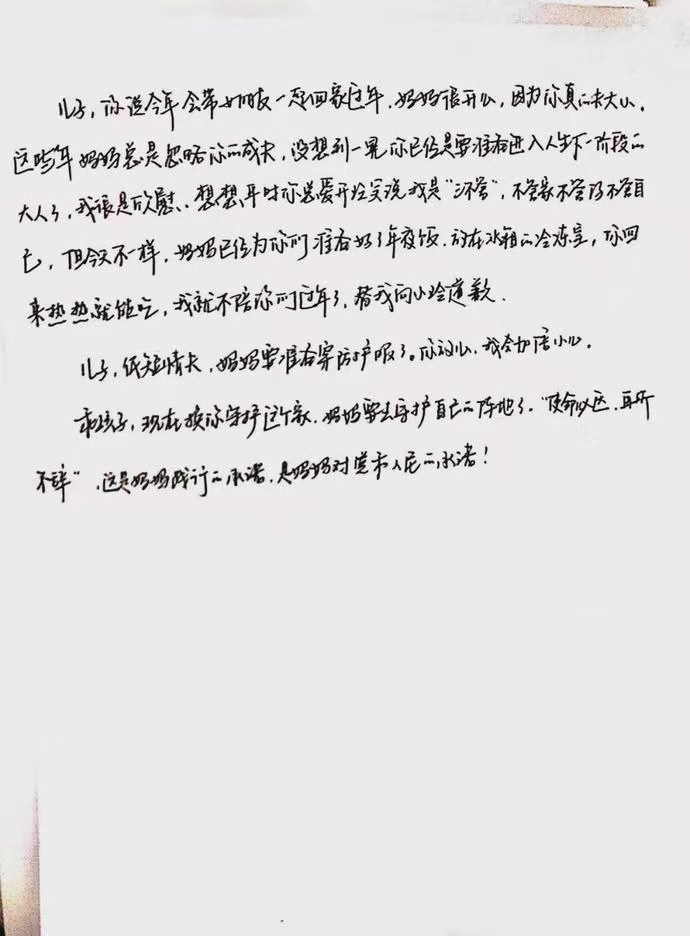 儿子，你说今年会带女朋友一起回家过年，妈妈很开心，因为你真的长大了。
这些年妈妈总是忽略你的成长，没想到一晃你已经是要准备进入人生下一阶段的
大人了，我很是欣慰。想想平时你总爱开玩笑说我是“三不管”，不管家不管你不管自
己，但今天不一样，妈妈已经为你们准备好了年夜饭，放在冰箱的冷冻里，你回
来热热就能吃，我就不陪你们过年了，替我向小玲道歉.
儿子，纸短情长，妈妈要准备穿防护服了。你放心，我会加倍小心。
乖孩子，现在换你守护这个家，妈妈要去守护自己的阵地了，“使命必达，在所
不辞”，这是妈妈践行的承诺，是妈妈对党和人民的承诺！